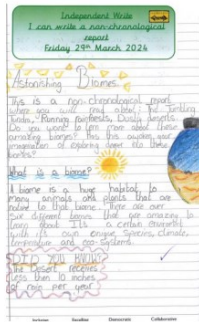 Independent Write
I can write a non-chronological
report
Friday 29th March 2024
Astonishing Biomes
This is a non-chronological report
where you will read about the tumbling
Running rainforests, Dusty deserts.
Do you want to learn more about these
amazing biomes? Has this awaken your
imagination of exploring deeper into these
What is a biome?
A biome is a huge habitat to
many animals and plants that are
native to that biome. There are over
six different biomes that are amazing to
learn about. It's a certain environment
with it's own unique species, climate,
temperature and eco-systems.
DID YOU KNOW?
The Desert receives
less than 10 inches
of rain per year
Inclusive Democratic Collaborative